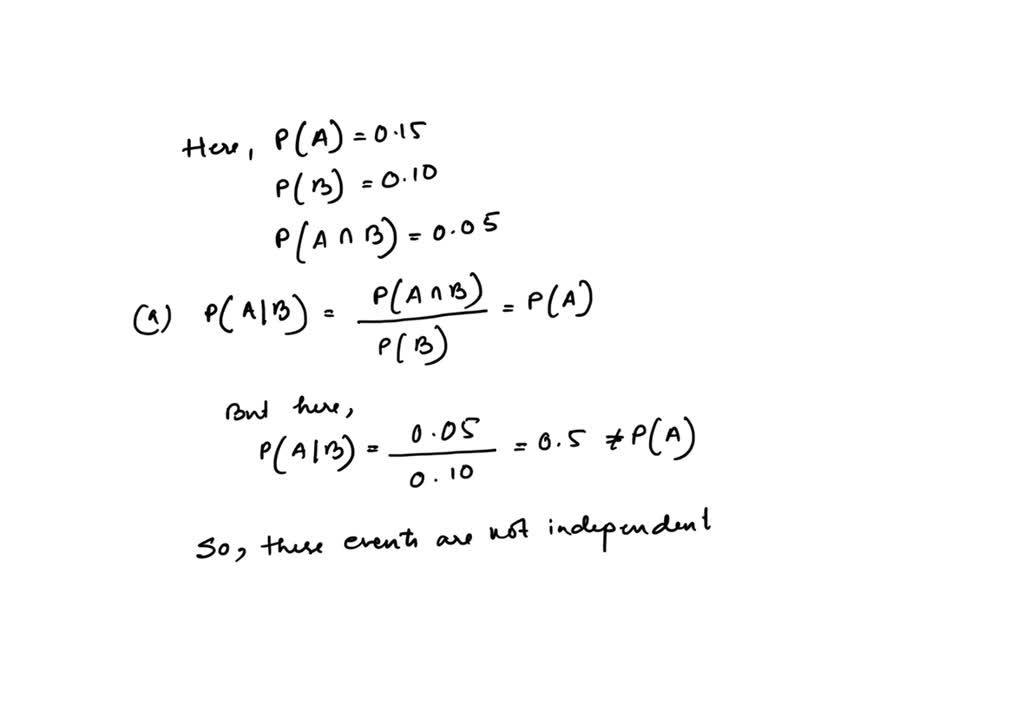 Here, P(A) = 0.15
P(B) = 0.10
P(A ∩ B) = 0.05
(a) P(A|B) = P(A∩B) / P(B) = P(A)
But here,
P(A|B) = 0.05 / 0.10 = 0.5 ≠ P(A)
So, these events are not independent